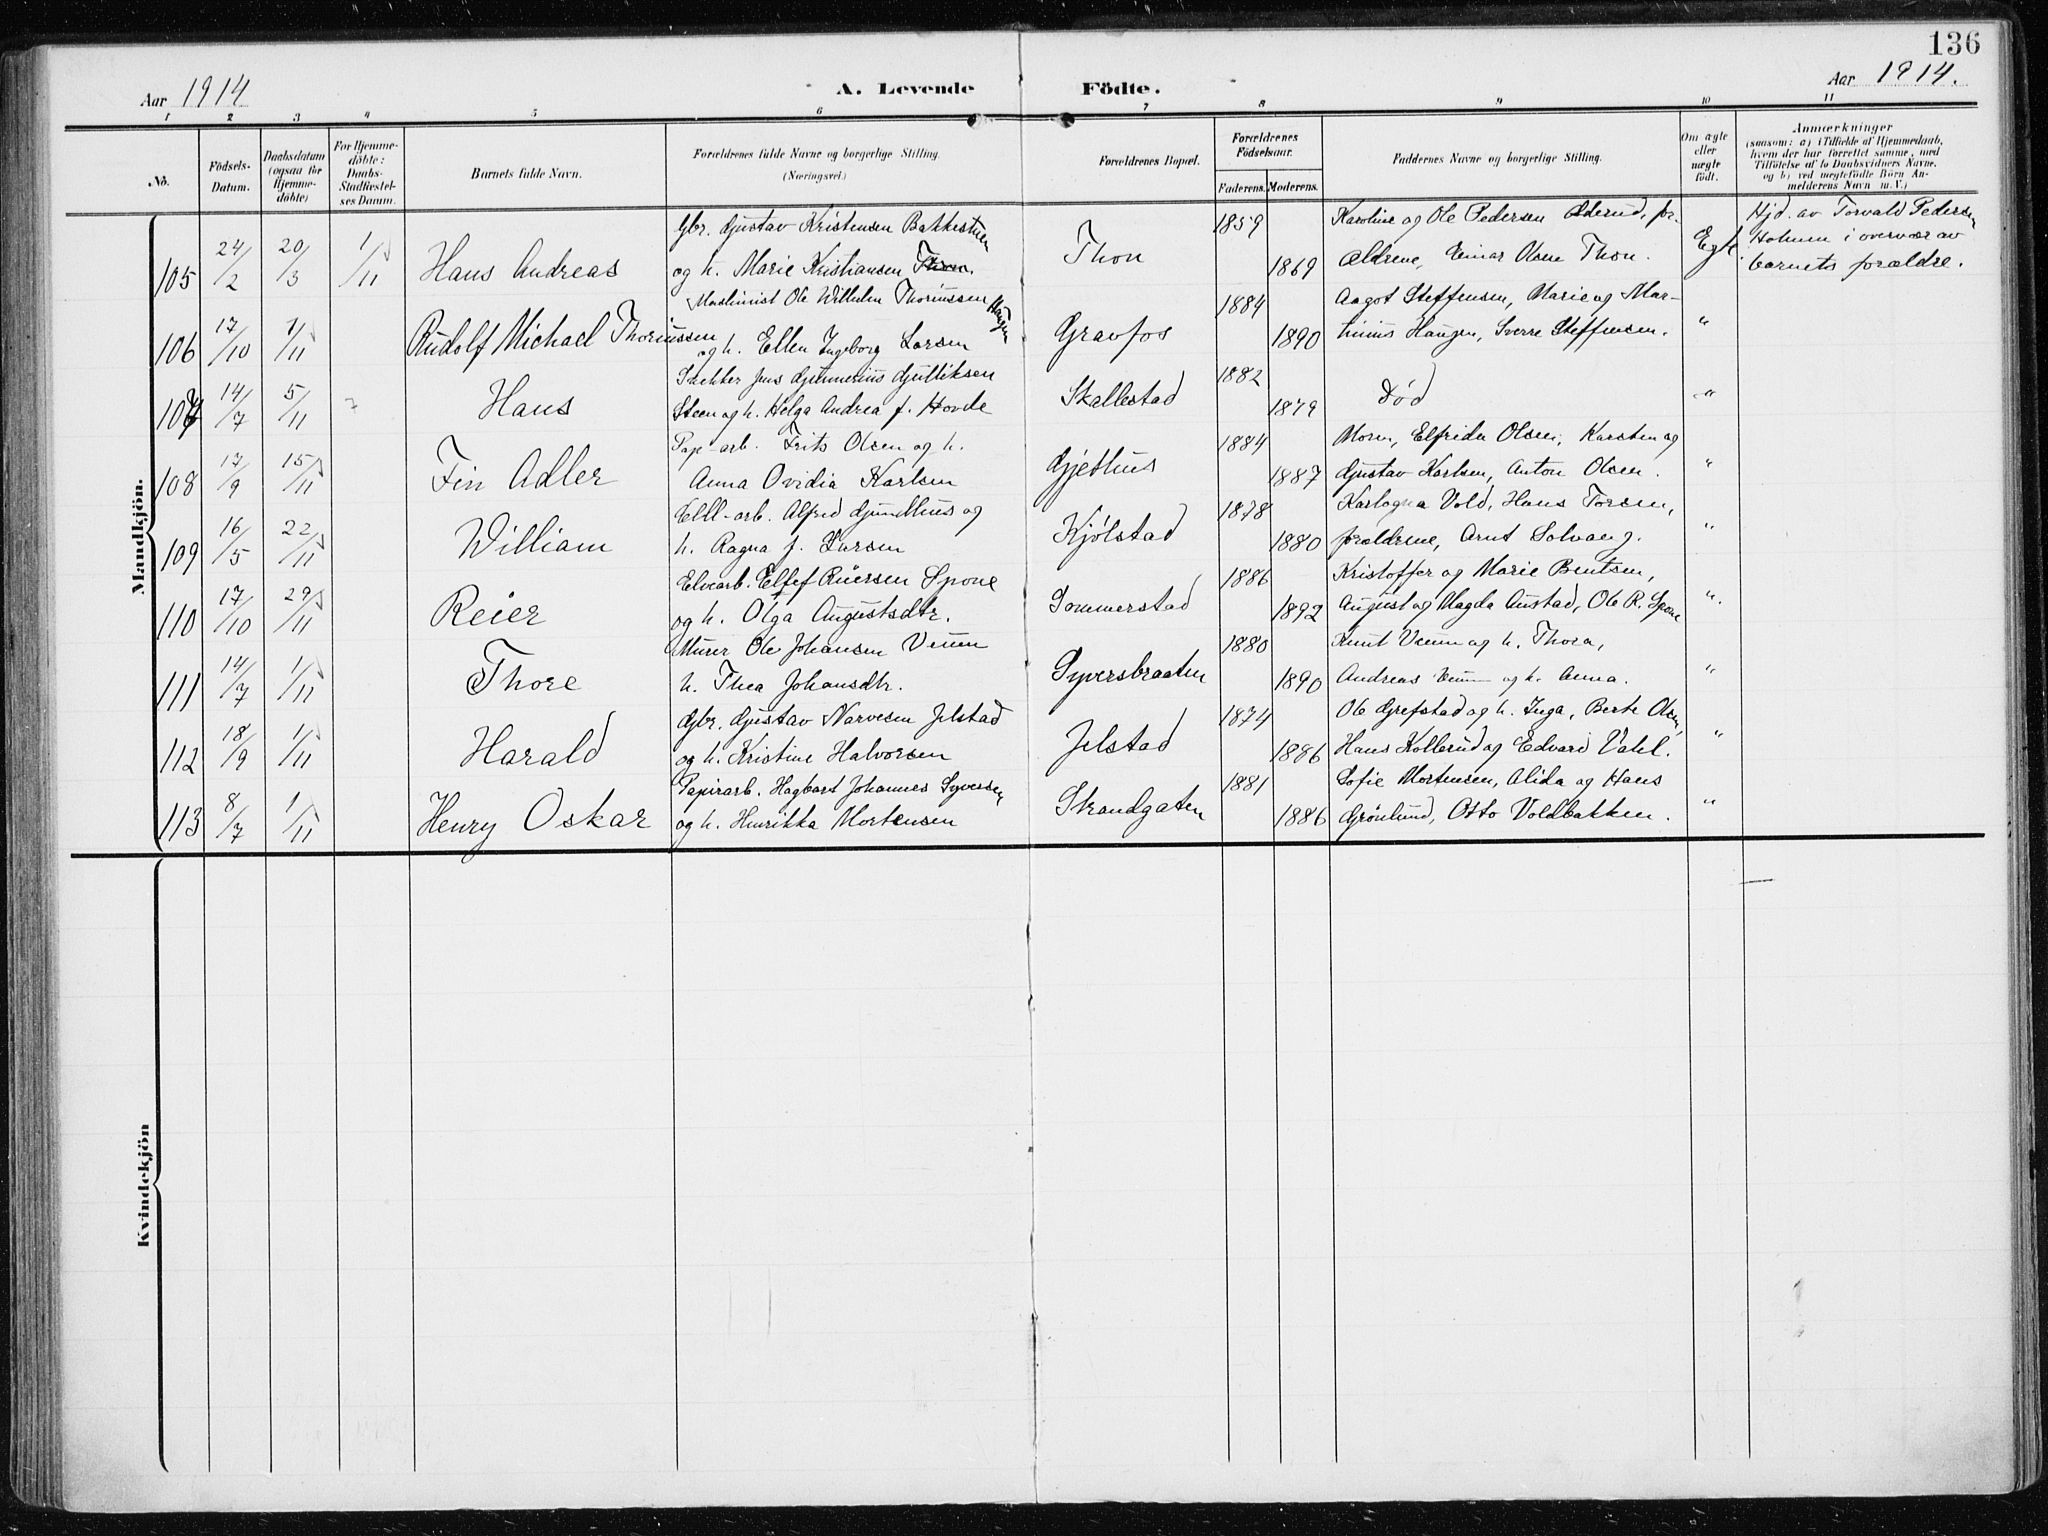 136
Aar 1914
A. Levende Födte.
Aar 1914.
1 2 3 4 5 6 7 8 9 10 11
No.
Födsels-Datum.
Daabsdatum (ogsaa for Hjemme-döbte)
For Hjemme-döbte: Daabs-Stadfæstel-ses Datum.
Barnets fulde Navn.
Forældrenes fulde Navne og borgerlige Stilling. (Næringsvei.)
Forældrenes Bopæl.
Forældrenes Födselsaar.
Faderens. Moderens.
Faddernes Navne og borgerlige Stilling.
Om ægte eller uægte födt.
Anmærkninger
(saasom: a) i Tilfælde af Hjemmedaab, hvem der har forrettet samme, med Tilföielse af to Daabsvidners Navne, og b) ved uægtefödte Börn An-melderens Navn m. V.)
Mandkjön.
105 24/2 20/3 1/11 Hans Andreas
Gbr. Gustav Kristensen Bakkestuen
og h. Marie Kristiansen Thon.
Thon 1859 1869
Karoline og Ole Pedersen Aaserud, for-
ældrene, Einar Olsen Thon.
Egte
Hjd. av Torvald Pedersen
Holmen i overvær av
barnets forældre.
106 17/10 1/11 Rudolf Michael Thoriussen
Maskinist Ole Wilhelm Thoriussen Haugen
og h. Ellen Ingeborg Larsen
Gravfos 1884 1890
Aagot Steffensen, Marie og Mar-
tinius Haugen, Sverre Steffensen.
"
107 14/7 5/11 Hans
Snekker Jens Gunnerius Gulliksen
Steen og h. Helga Andrea f. Hovde
Skallestad 1882 1879
Död
"
108 17/9 15/11 Fin Adler
Pap-arb. Frits Olsen og h.
Anna Ovidia Karlsen
Gjethus 1884 1887
Moren, Elfrida Olsen, Karsten og
Gustav Karlsen, Anton Olsen.
"
109 16/5 22/11 William
Cell-arb. Alfred Gundhus og
h. Ragna f. Larsen
Kjölstad 1878 1880
Karlagna Vold, Hans Torsen,
forældrene, Arnt Solvang.
"
110 17/10 29/11 Reier
Elvearb. Elfef Reiersen Spone
og h. Olga Augustsdtr.
Sommerstad 1886 1892
Kristoffer og Marie Bentsen,
August og Magda Austad, Ole R. Spone
"
111 14/7 1/11 Thore
Murer Ole Johansen Veum
h. Thea Johansdtr.
Syversbraaten 1880 1890
Knut Veum og h. Thora,
Andreas Veum og h. Anna.
"
112 18/9 1/11 Harald
Gbr. Gustav Narvesen Jelstad
og h. Kristine Halvorsen
Jelstad 1874 1886
Ole Grefstad og h. Inga, Berte Olsen,
Hans Kollerud og Edvard Vahl.
"
113 8/7 1/11 Henry Oskar
Papirarb. Hagbart Johannes Syversen
og h. Henrikka Mortensen
Strandgaten 1881 1886
Sofie Mortensen, Alida og Hans
Grönlund, Otto Voldbakken.
"
Kvindekjön